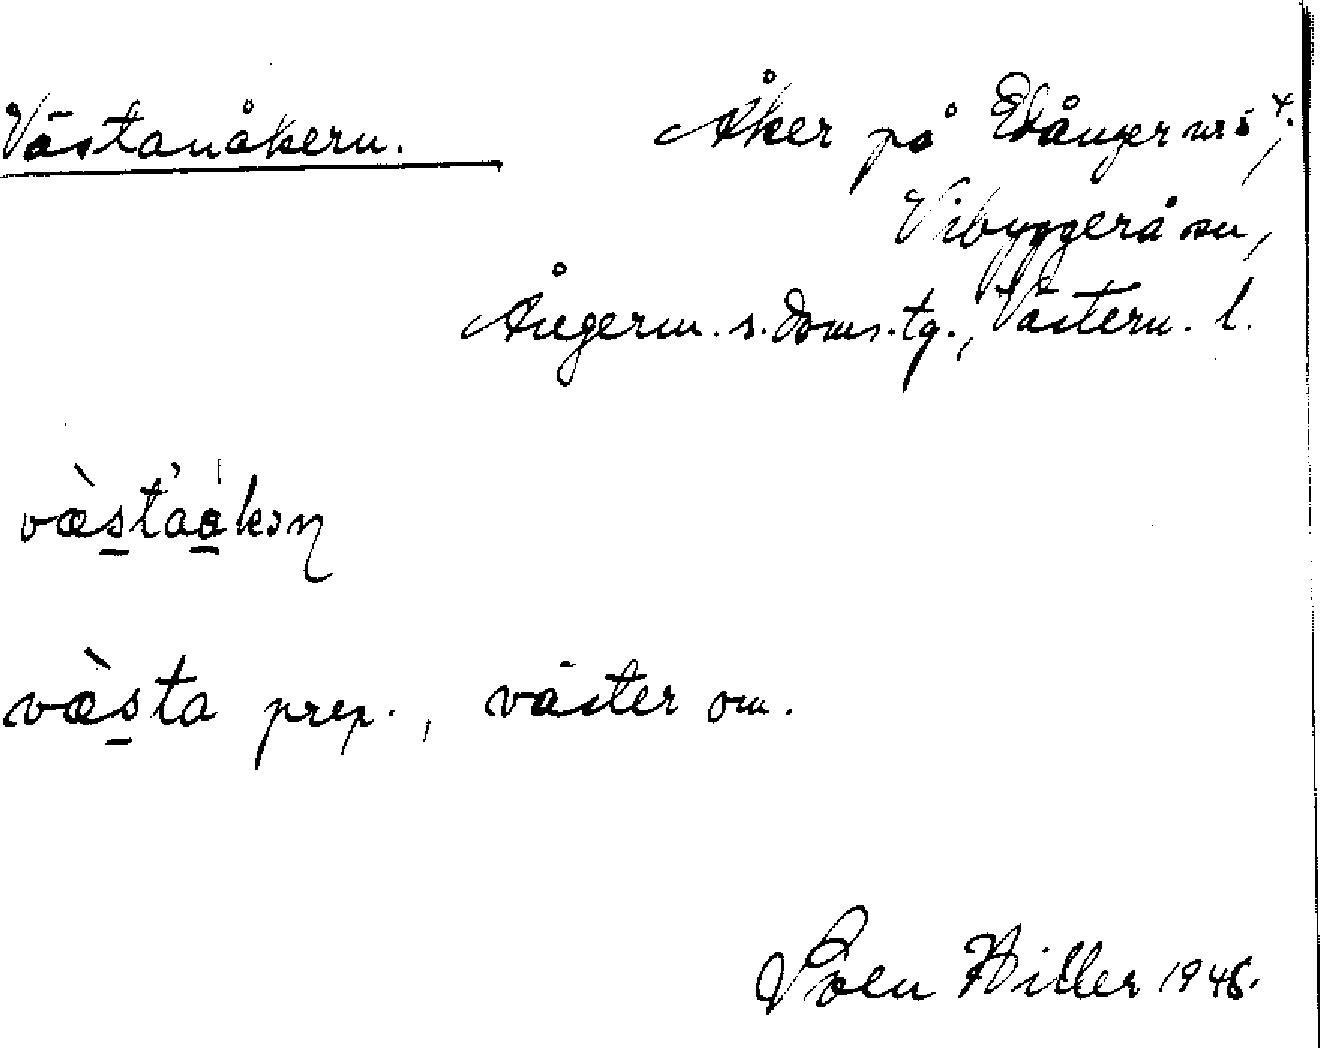 Västanåkern. Åker på Edånger nr 5 4,
Vibyggerå sn,
Ångerm. s. doms. tg., Västern. l.
væ̀staåkəɳ
væ̀sta prep., väster om.
Sven Hiller 1946.